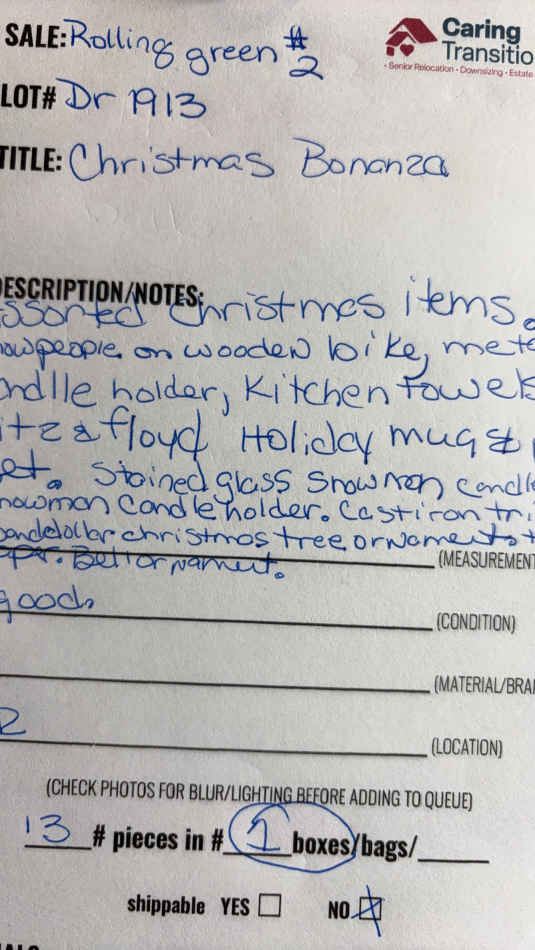 SALE: Rolling green #2
Caring
Transitio
• Senior Relocation • Downsizing • Estate
LOT# Dr 1913
TITLE: Christmas Bonanza
DESCRIPTION/NOTES:
ssorted Christmas items.
owpeople on wooden bike, met
ndlle holder, Kitchen towels
itz & floyd Holiday mug &
et. Stained glass snowman candle
nowman candle holder. Cast iron tri
christmas tree ornaments
Bell ornament.
(MEASUREMENT
good.
(CONDITION)
(MATERIAL/BRA
R
(LOCATION)
(CHECK PHOTOS FOR BLUR/LIGHTING BEFORE ADDING TO QUEUE)
13 # pieces in # 1 boxes/bags/
shippable YES ☐ NO ☒